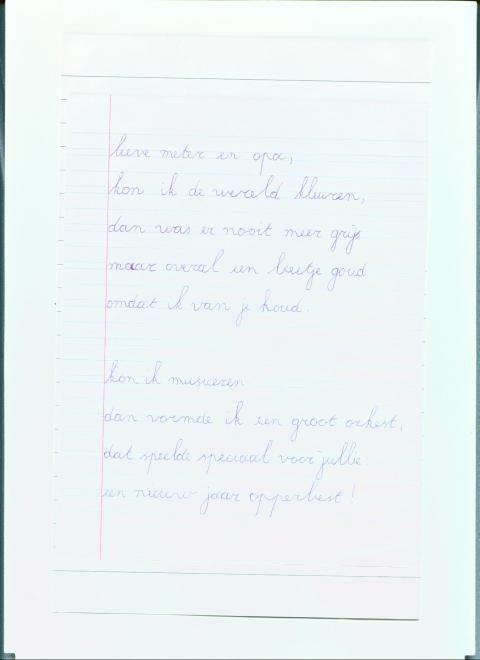 lieve meter en opa,
kon ik de wereld kleuren,
dan was er nooit meer grijs
maar overal een beetje goud
omdat ik van je houd.
kon ik musiceren
dan vormde ik een groot orkest,
dat speelde speciaal voor jullie
een nieuw jaar opperbest!